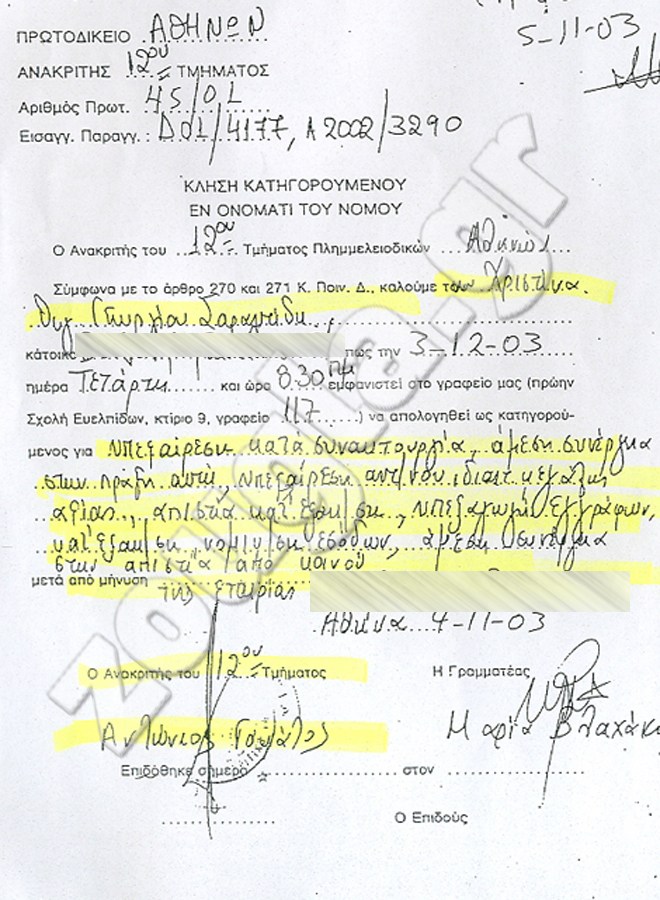 ΠΡΩΤΟΔΙΚΕΙΟ ΑΘΗΝΩΝ
5-11-03
ΑΝΑΚΡΙΤΗΣ 12ου ΤΜΗΜΑΤΟΣ
Αριθμός Πρωτ. 45/02
Εισαγγ. Παραγγ. : Δ01/4177, Α2002/3290
ΚΛΗΣΗ ΚΑΤΗΓΟΡΟΥΜΕΝΟΥ
ΕΝ ΟΝΟΜΑΤΙ ΤΟΥ ΝΟΜΟΥ
Ο Ανακριτής του 12ου Τμήματος Πλημμελειοδικών Αθηνών
Σύμφωνα με το άρθρο 270 και 271 Κ. Ποιν. Δ., καλούμε την Χριστίνα
θυγ Γεωργίου
κάτοικο πως την 3-12-03
ημέρα Τετάρτη και ώρα 8.30 πμ εμφανιστεί στο γραφείο μας (πρώην
Σχολή Ευελπίδων, κτίριο 9, γραφείο 117) να απολογηθεί ως κατηγορού-
μενος για υπεξαίρεση κατά συναυτουργία, άμεση συνέργεια
στην πράξη αυτή, υπεξαίρεση αντ/νου ιδιαιτ μεγάλης
αξίας, απιστία κατ' εξακ/ση, υπεξαγωγή εγγράφων,
κατ' εξακ/ση, νομιμ/ση εσόδων, άμεση συνέργεια
στην απιστία από κοινού
μετά από μήνυση
της εταιρίας
Αθήνα 4-11-03
Ο Ανακριτής του 12ου Τμήματος
Η Γραμματέας
Αντώνιος
Μαρία Βλαχάκη
Επιδόθηκε σήμερα στον
Ο Επιδούς
zougla.gr